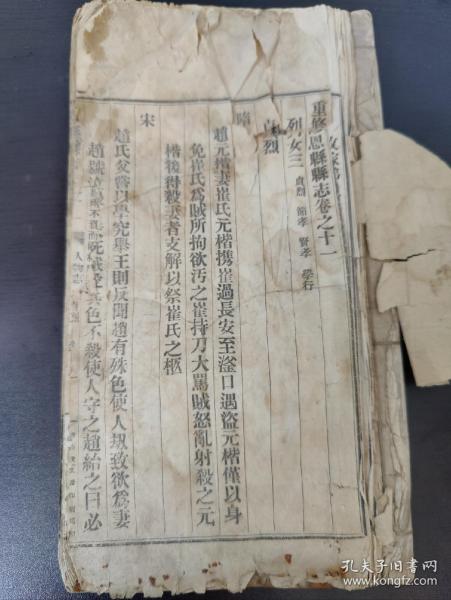 重修恩縣縣志卷之十一
列女三 貞烈 節孝 賢孝 學行
貞烈
隋
趙元楷妻崔氏元楷携崔過長安至滏口遇盜元楷僅以身
免崔氏爲賊所拘欲汚之崔持刀大罵賊怒亂射殺之元
楷後得殺妻者支解以祭崔氏之柩
宋
趙氏父嘗以學究舉王則反聞趙有殊色使人刼致欲爲妻
趙號
色不殺使人守之趙紿之曰必
人物志
孔夫子旧書网
https://www.kongfz.com